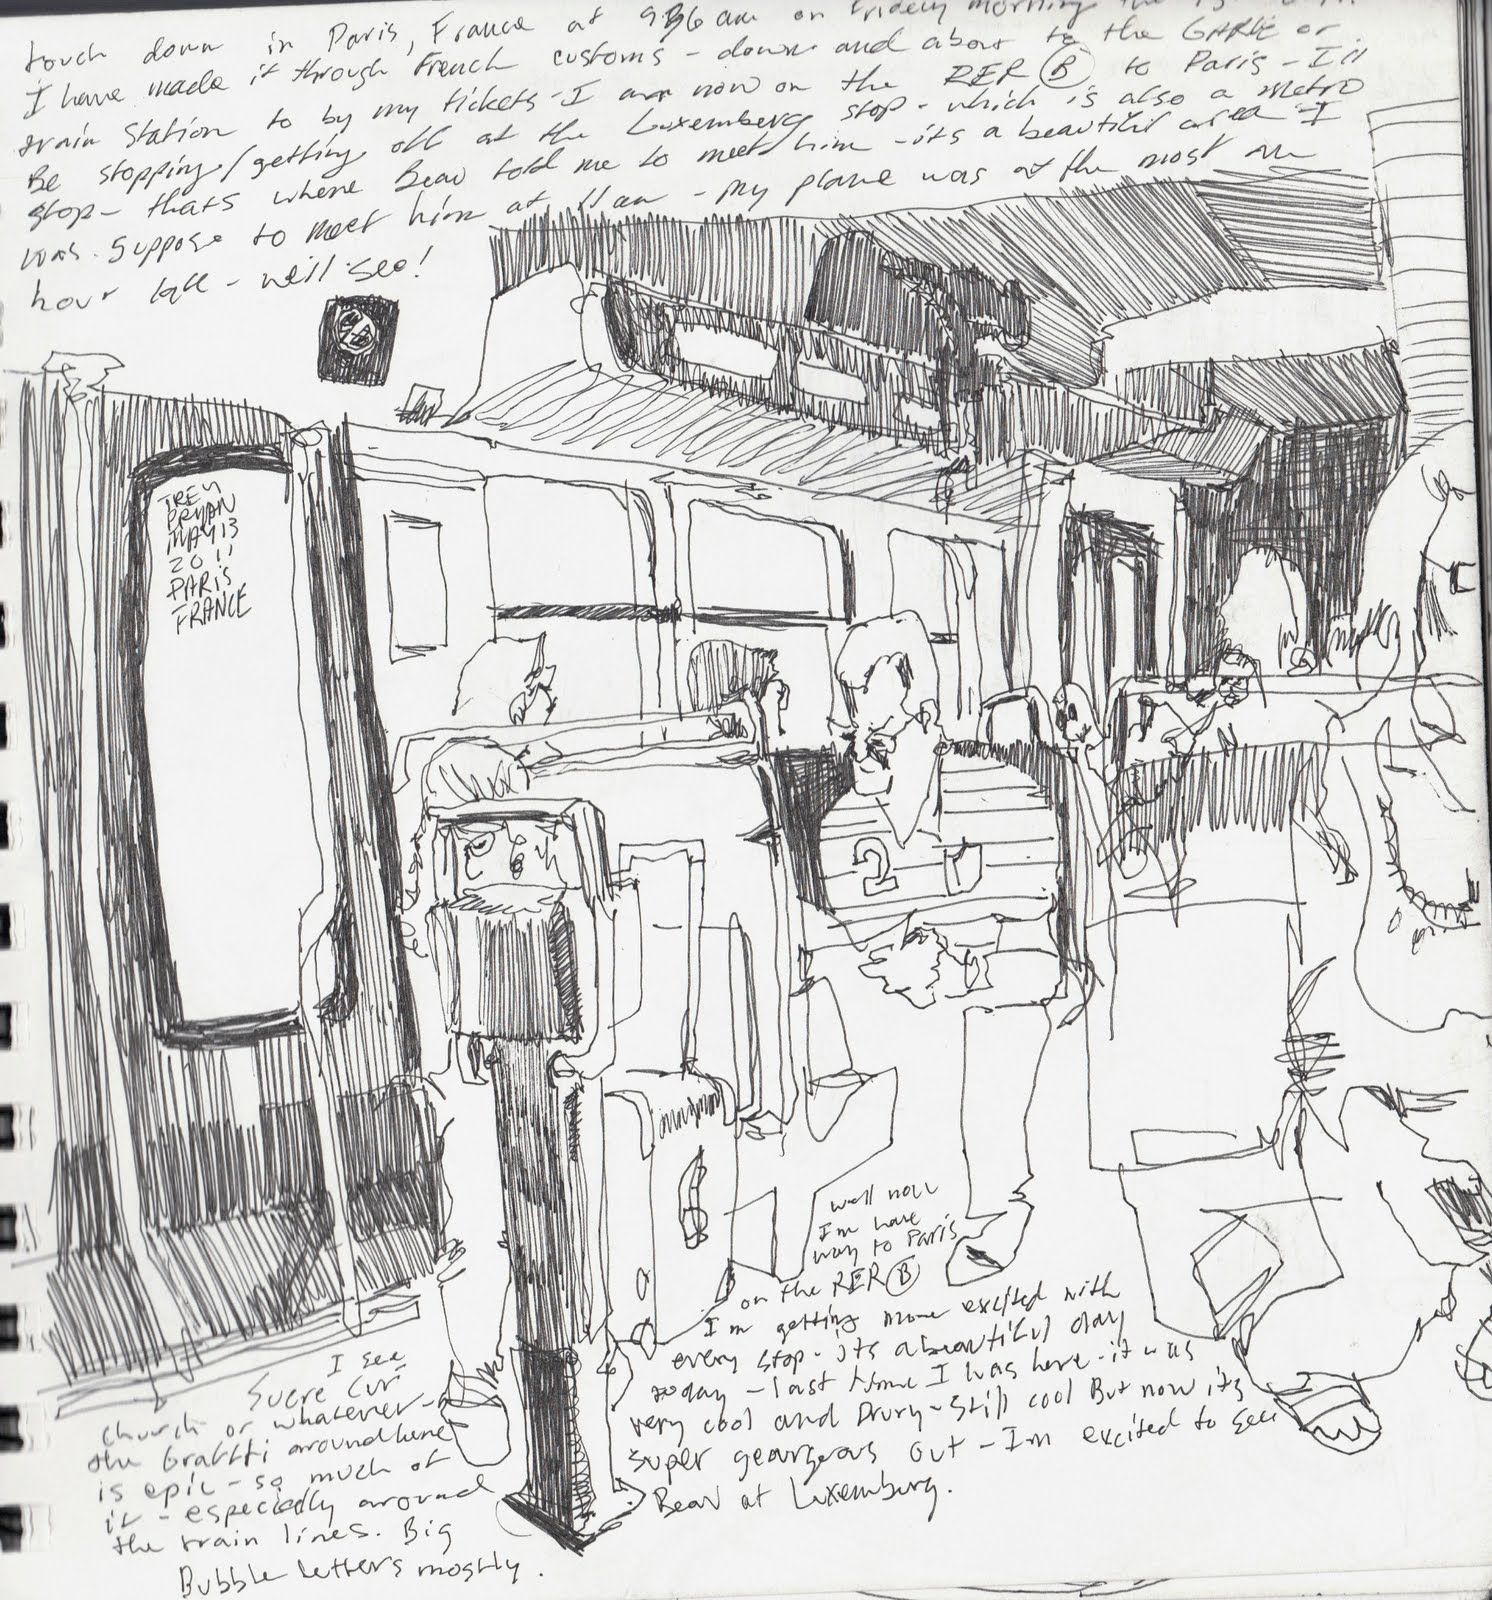 touch down in Paris, France at 9:36 am on Friday morning the 13
I have made it through French customs - down and about to the GARE or
train station to by my tickets - I am now on the RER B to Paris - I'll
Be stopping/getting off at the Luxemberg stop - which is also a metro
stop - thats where Beau told me to meet him - its a beautiful area - I
was suppose to meet him at 11 am - my plane was at the most an
hour late - we'll see!
TREY
BRYAN
MAY 13
2011
PARIS
FRANCE
2
well now
I'm have
way to Paris
on the RER B
I'm getting more excited with
every stop - its a beautiful day
today - last time I was here - it was
very cool and Drury - still cool But now its
super georgeous out - I'm excited to see
Beau at Luxemburg.
I see
Sucre Cur
church or whatever -
the Graffiti around here
is epic - so much of
it - especially around
the train lines. Big
Bubble letters mostly.